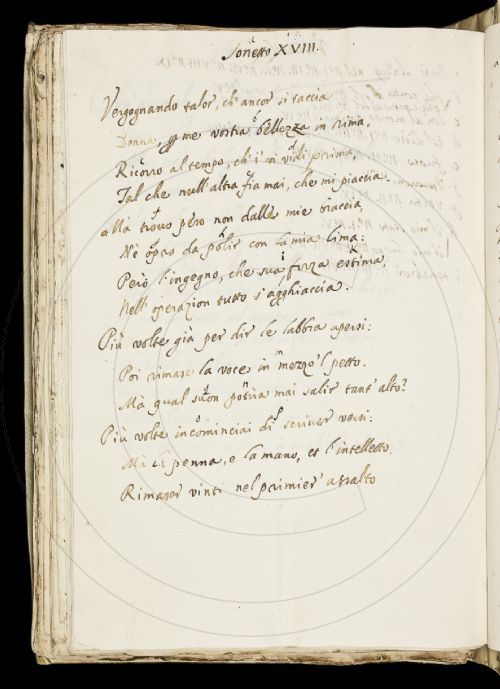 Sonetto XVIII.
Vergognando talor, ch'ancor si taccia
Donna, per me vostra bellezza in rima,
Ricorro al tempo, ch'i' vi vidi prima,
Tal che null'altra fia mai, che mi piaccia
Mà trovo peso non dalle mie braccia
Nè opra da polir con la mia lima:
Però l'ingegno, che sua forza estima
Nell'operazion tutto s'agghiaccia.
Più volte già per dir le labbia apersi:
Poi rimase la voce in mezzo'l petto.
Mà qual suon poria mai salir tant'alto?
Più volte incominciai di scriver versi:
Mà la penna, e la mano, et l'intelletto,
Rimaser vinti nel primier assalto